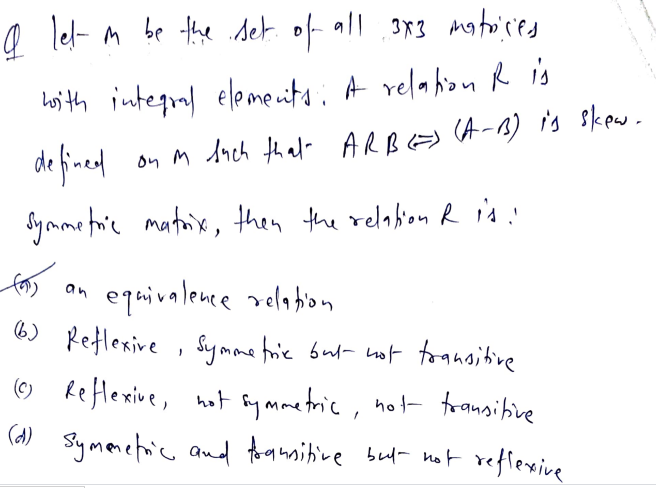 Q let M be the set of all 3x3 matricies
with integral elements. A relation R is
defined on M such that ARB <=> (A-B) is skew-
symmetric matrix, then the relation R is :
(a) an equivalence relation
(b) Reflexive, Symmetric but not transitive
(c) Reflexive, not symmetric, not transitive
(d) Symmetric and transitive but not reflexive